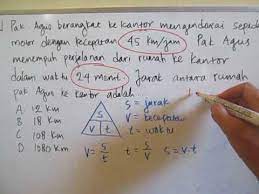 Pak Agus berangkat ke kantor mengendarai sepeda
motor dengan kecepatan 45 km/jam Pak Agus
menempuh perjalanan dari rumah ke kantor
dalam waktu 24 menit. Jarak antara rumah
pak Agus ke kantor adalah...
A. 12 km
B. 18 km
C. 108 km
D. 1080 km
S
V t
S = jarak
V = kecepatan
t = waktu
V = S/t t = S/V S = V.t